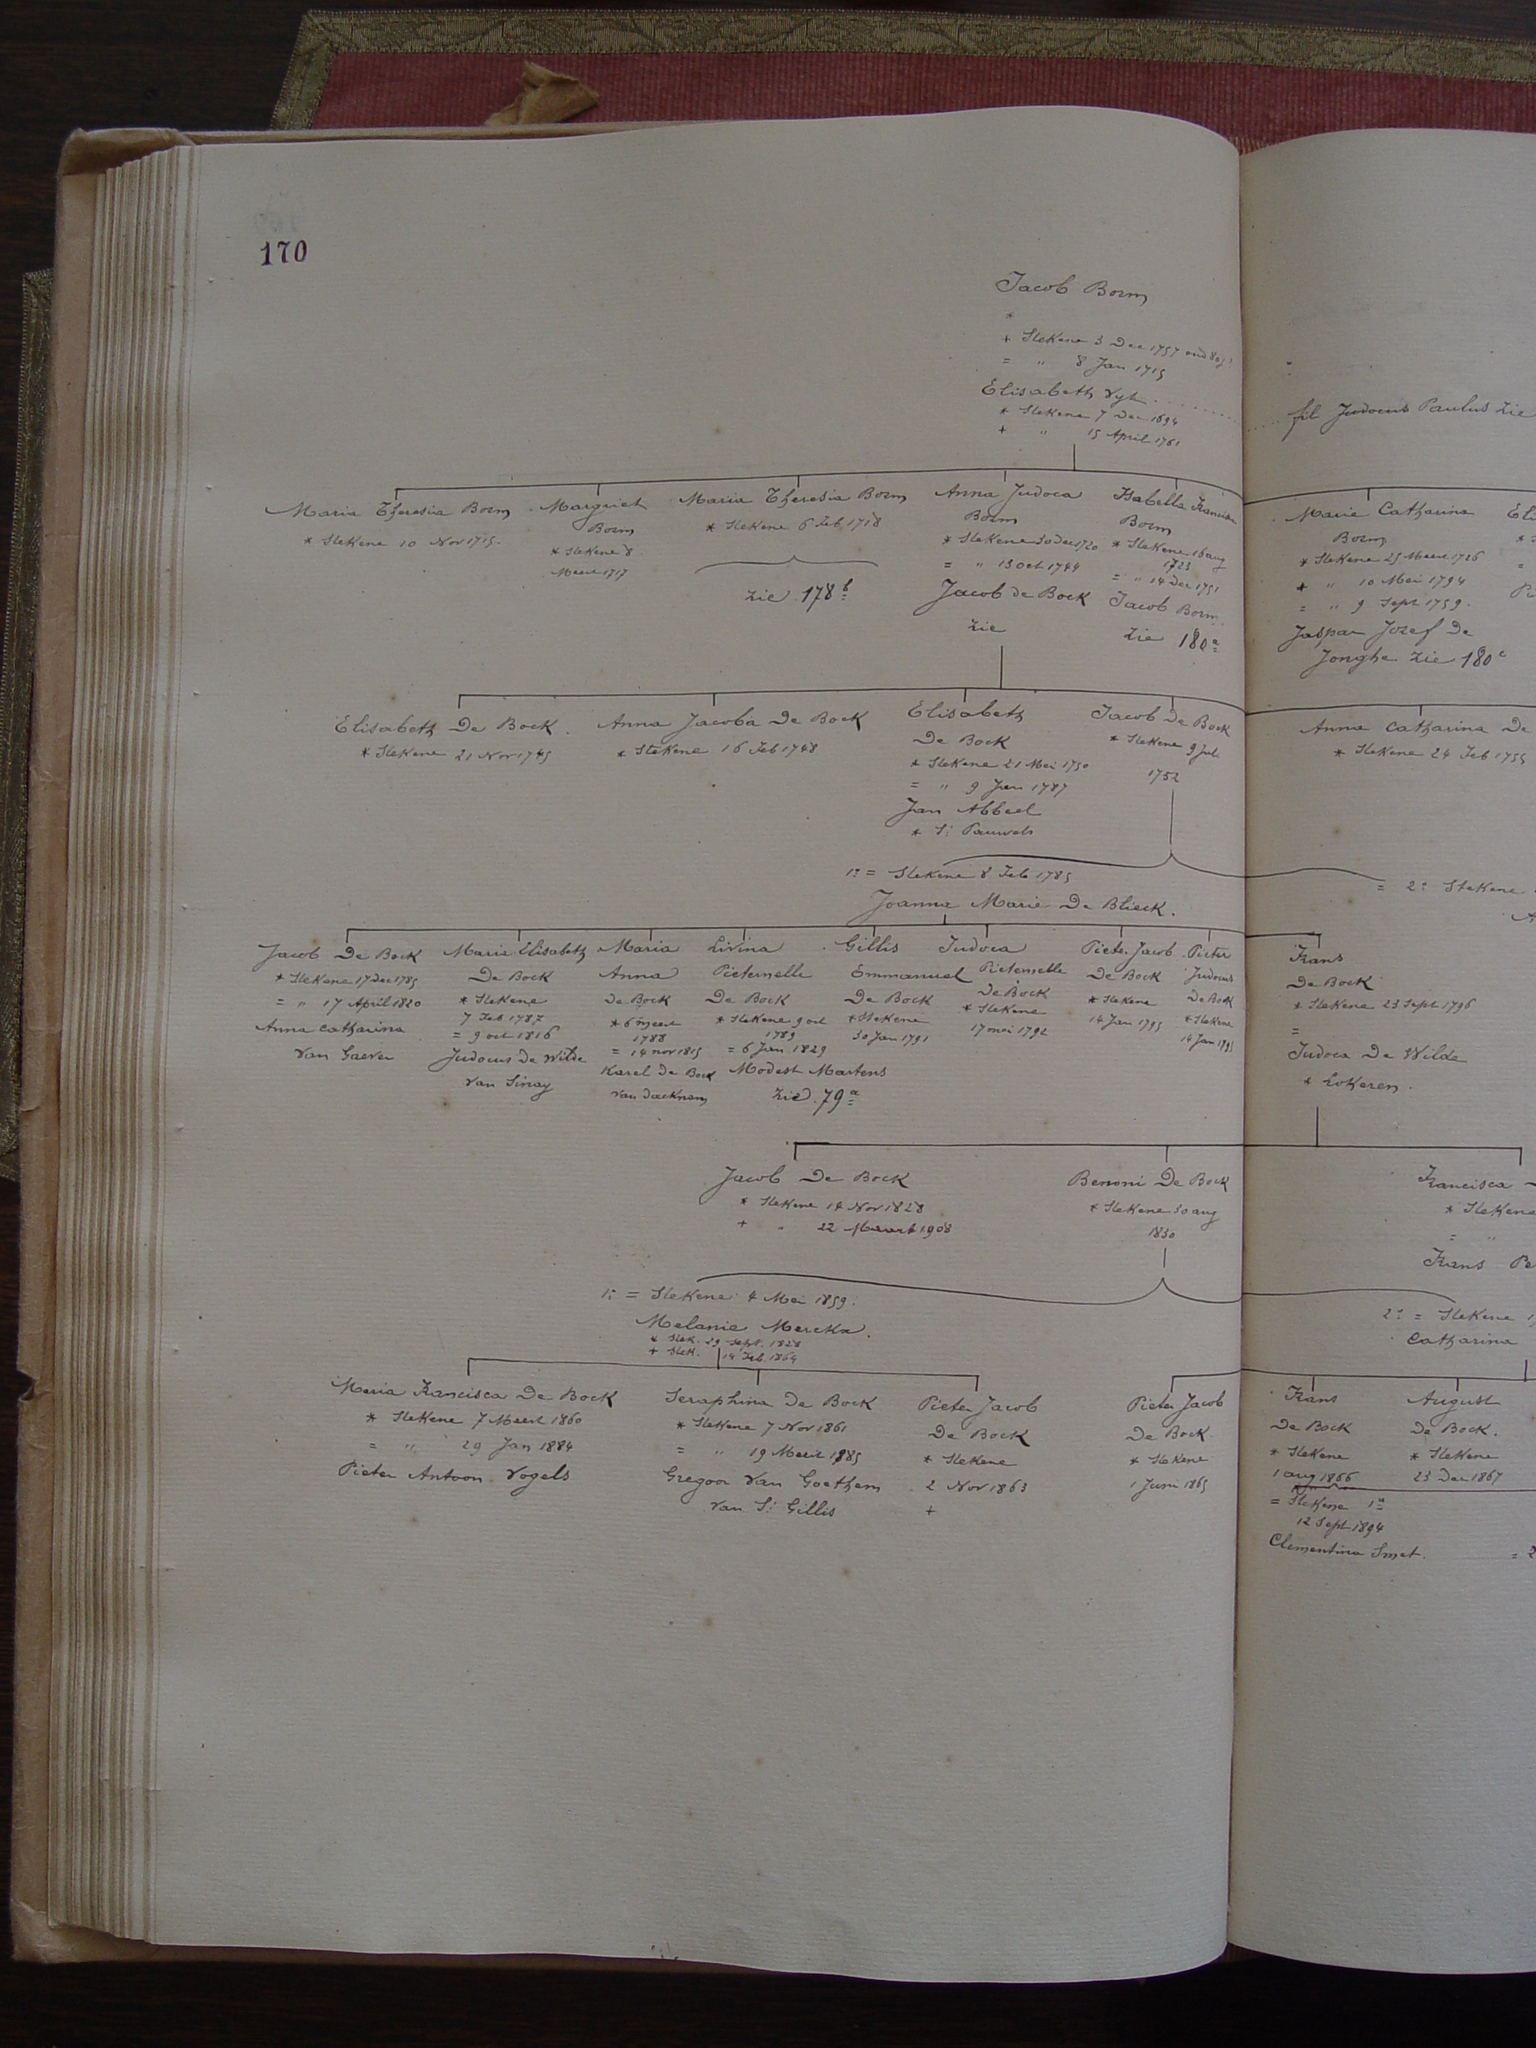 170
Jacob Borm
*
+ Stekene 3 Dec 1757 oud 80 j
= " 8 Jan 1715
Elisabeth Vyt
* Stekene 7 Dec 1694
+ " 15 April 1761
fil Judocus Paulus Zie
Maria Theresia Borm
* Stekene 10 Nov 1715.
Margriet
Borm
* Stekene 8
Meert 1717
Maria Theresia Borm
* Stekene 6 Feb 1718
Zie 178 b
Anna Judoca
Borm
* Stekene 30 Dec 1720
= " 13 oct 1744
Jacob de Bock
Zie
Isabella Francisca
Borm
* Stekene 16 aug
1723
= " 14 Dec 1751
Jacob Borm
Zie 180 a
Marie Catharina
Borm
* Stekene 25 Meert 1726
+ " 10 Mei 1794
= " 9 Sept 1759.
Jaspar Jozef De
Jonghe Zie 180 c
Elisabeth De Bock
* Stekene 21 Nov 1745
Anna Jacoba De Bock
* Stekene 16 Feb 1748
Elisabeth
De Bock
* Stekene 21 Mei 1750
= " 9 Jan 1787
Jan Abbeel
* St Pauwels
Jacob De Bock
* Stekene 9 Jul
1752
Anna Catharina De
* Stekene 24 Feb 1755
1° = Stekene 8 Feb 1785
Joanna Marie De Blieck.
= 2° Stekene
Jacob De Bock
* Stekene 17 Dec 1785
= " 17 April 1820
Anna Catharina
Van Gaever
Marie Elisabeth
De Bock
* Stekene
7 Feb 1787
= 9 oct 1816
Judocus De Wilde
Van Sinay
Maria
Anna
De Bock
* 6 meert
1788
= 14 nov 1815
Karel de Bock
Van Dacknam
Livina
Pieternelle
De Bock
* Stekene 9 oct
1789
= 6 Jan 1829
Modest Martens
Zie 79 a
Gillis
Emmanuel
De Bock
* Stekene
30 Jan 1791
Judoca
Pieternelle
De Bock
* Stekene
17 mei 1792
Pieter Jacob
De Bock
* Stekene
14 Jan 1795
Pieter
Judocus
De Bock
* Stekene
14 Jan 1795
Frans
De Bock
* Stekene 23 Sept 1796
=
Judoca De Wilde
* Lokeren.
Jacob De Bock
* Stekene 14 Nov 1828
+ " 22 Maart 1908
Benoni De Bock
* Stekene 30 aug
1830
Francisca
* Stekene
= "
Frans
1° = Stekene 4 Mei 1859.
Melanie Merckx.
* Stek. 29 Sept. 1828
+ Stek. 14 Feb. 1864
2° = Stekene
Catharina
Maria Francisca De Bock
* Stekene 7 Meert 1860
= " 29 Jan 1884
Pieter Antoon Vogels
Seraphina De Bock
* Stekene 7 Nov 1861
= " 19 Meert 1885
Gregoor Van Goethem
Van St Gillis
Pieter Jacob
De Bock
* Stekene
2 Nov 1863
+
Pieter Jacob
De Bock
* Stekene
1 Juni 1865
Frans
De Bock
* Stekene
1 aug 1866
= Stekene 1e
12 Sept 1894
Clementina Smet.
August
De Bock.
* Stekene
23 Dec 1867